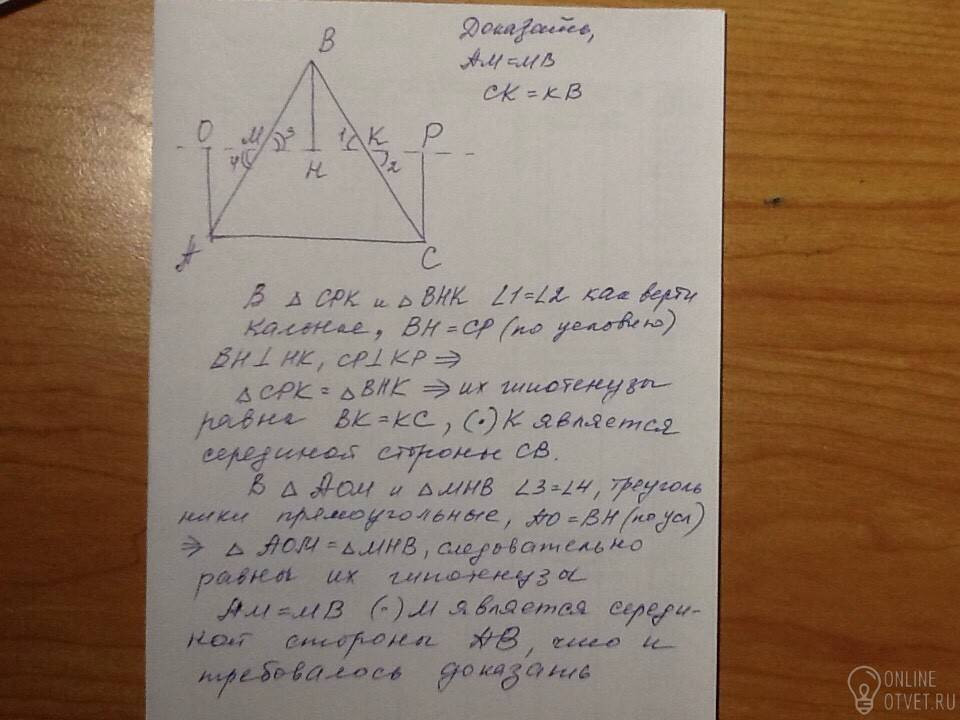 Доказать,
AM=MB
CK=KB
B
O
M
3
1
K
P
4
H
2
A
C
В △ CPK и △ BHK ∠1=∠2 как верти
кальные, BH=CP (по условию)
BH⊥HK, CP⊥KP ⇒
△CPK=△BHK ⇒ их гипотенузы
равны BK=KC, (·) K является
серединой стороны CB.
В △ AOM и △MHB ∠3=∠4, треуголь
ники прямоугольные, AO=BH (по усл)
⇒ △ AOM=△MHB, следовательно
равны их гипотенузы
AM=MB (·) M является середи-
ной стороны AB, что и
требовалось доказать
ONLINE
OTVET.RU